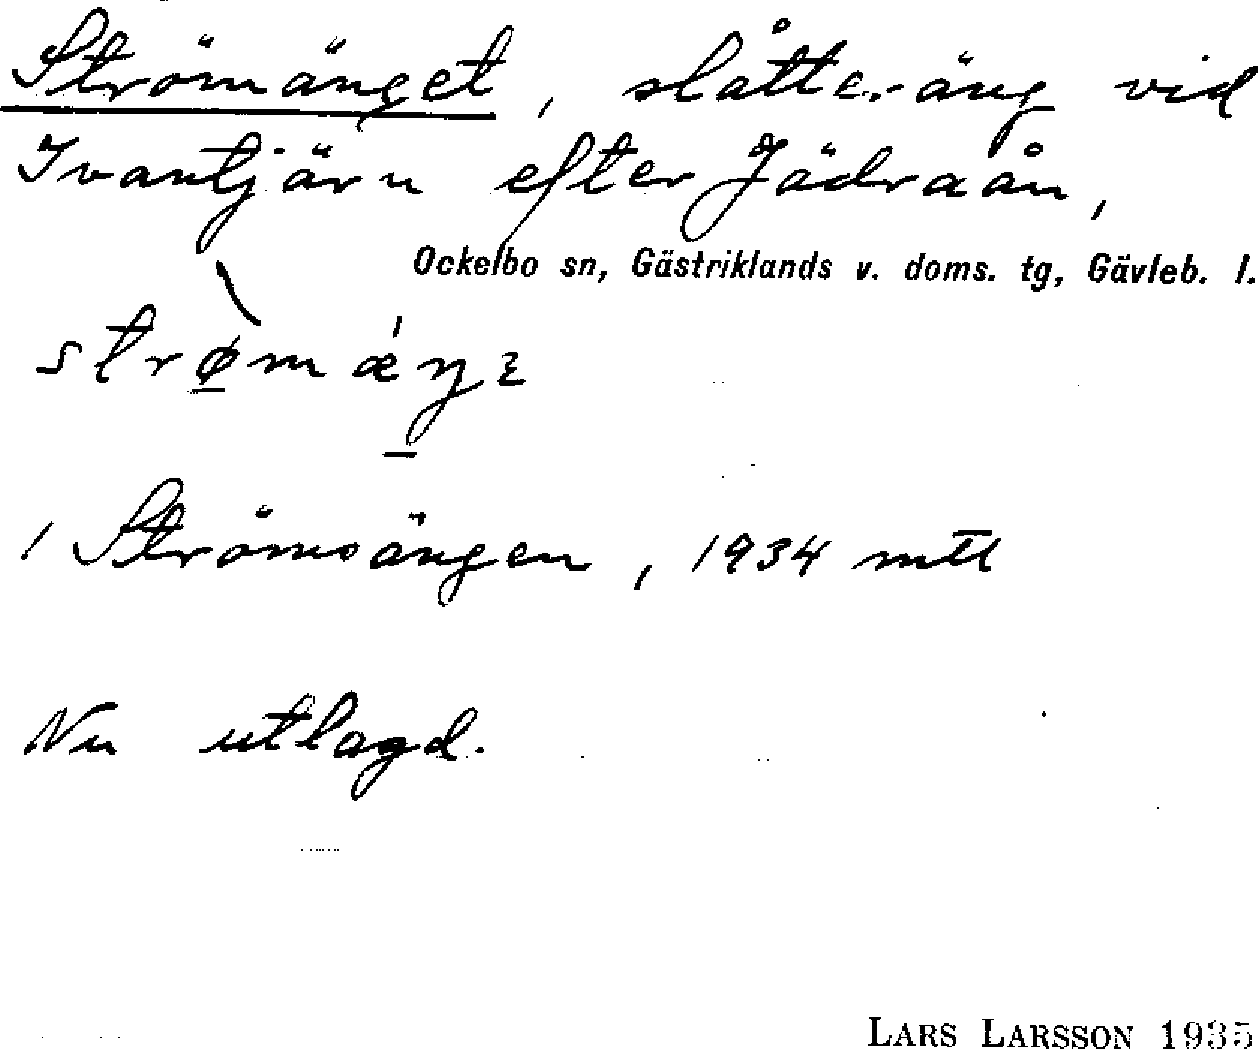 Strömänget, slåtteräng vid
Ivantjärn efter Jädraån,
Ockelbo sn, Gästriklands v. doms. tg, Gävleb. l.
strø̱mǽŋɛ
/ Strömsängen, 1934 mtl
Nu utlagd.
LARS LARSSON 1935